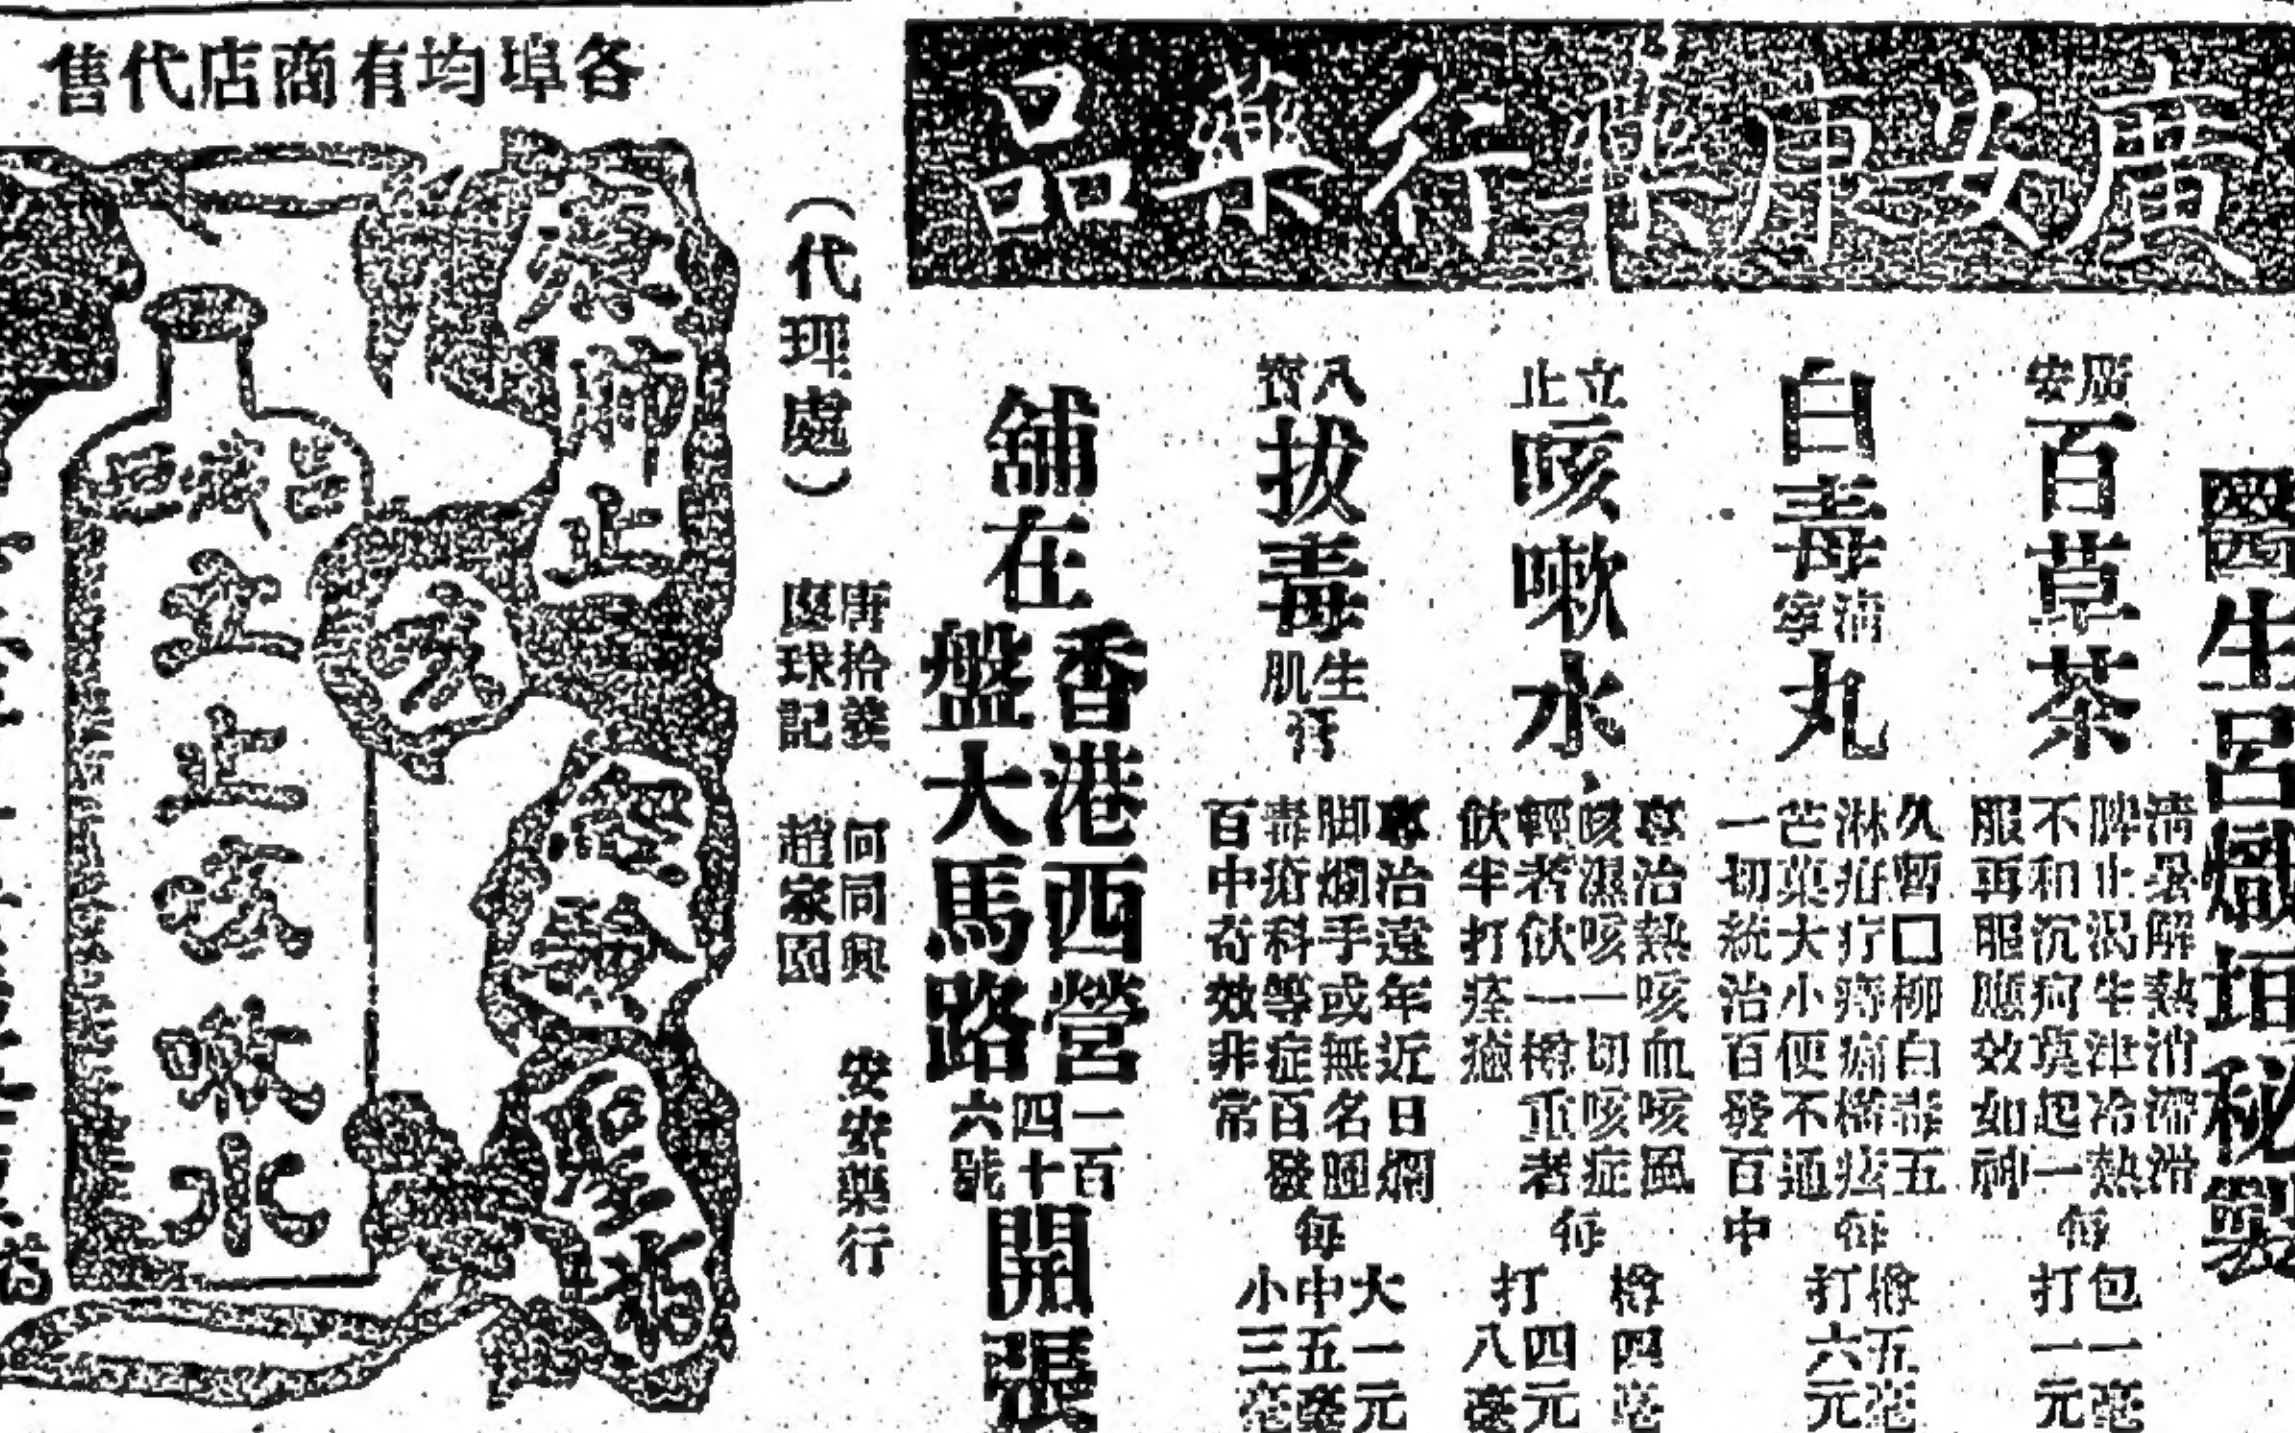 廣安康藥行藥品
醫生呂熾垣秘製
廣安百草茶
清暑解熱消滯滑
脾止渴生津冷熱
不和沉疴莫起一
服再服應效如神
每包一毫
打一元
白毒清寧丸
久暫囗柳白毒五
淋疳疔痔痛橫痃
芒菓大小便不通
一切統治百發百中
每樽五毫
打六元
立止咳嗽水
專治熱咳血咳風
咳濕咳一切咳症
輕者飲一樽重者
飲半打痊癒
每樽四毫
打四元八毫
八寶拔毒生肌膏
專治遠年近日爛
脚爛手或無名腫
毒瘡科等症百發
百中奇效非常
每大一元
中五毫
小三毫
舖在香港西營盤大馬路一百四十六號開張
(代理處)
唐拾義
何同興
安安藥行
趙家園
各埠均有商店代售
止咳
聖水
立止咳嗽水